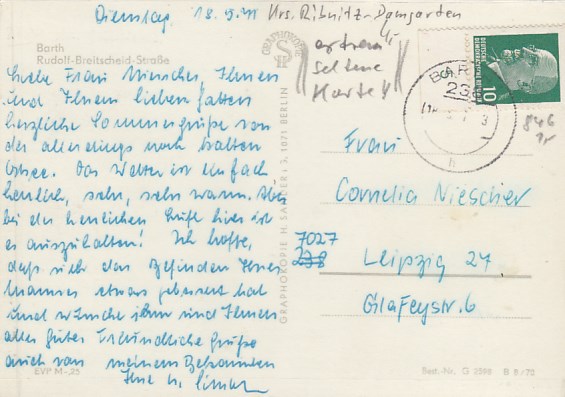 Dienstag
Krs. Ribnitz-Damgarten
extrem
seltene
Karte!
Barth
Rudolf-Breitscheid-Straße
Liebe Frau Niescher, Ihnen
und Ihrem lieben Gatten
herzliche Sommergrüße von
der allerdings noch kalten
Ostsee. Das Wetter ist einfach
herrlich, sehr, sehr warm. Aber
bei der herrlichen Luft hier ist
es auszuhalten! Ich hoffe,
daß sich das Befinden Ihres
Mannes etwas gebessert hat
und wünsche ihm und Ihnen
alles Gute! Freundliche Grüße
auch von meinem Bekannten
Ihre
EVP M-,25
GRAPHOKOPIE H. SANDER, 1071 BERLIN
GRAPHOKOPIE
DEUTSCHE
DEMOKRATISCHE REPUBLIK
10
23
Frau
Cornelia Niescher
7027
Leipzig 27
Glafeystr. 6
Best.-Nr. G 2398 B 8/72